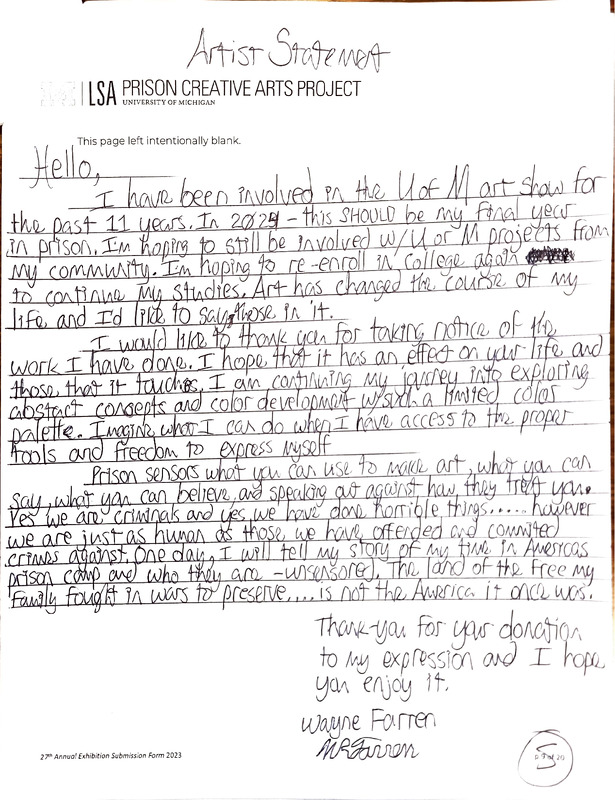 Artist Statement
LSA PRISON CREATIVE ARTS PROJECT
UNIVERSITY OF MICHIGAN
This page left intentionally blank.
Hello,
I have been involved in the U of M art show for
the past 11 years. In 2024 - this SHOULD be my final year
in prison. I'm hoping to still be involved w/ U of M projects from
my community. I'm hoping to re-enroll in college again
to continue my studies. Art has changed the course of my
life and I'd like to say those in it.
I would like to thank you for taking notice of the
work I have done. I hope that it has an effect on your life and
those that it touches. I am continuing my journey into exploring
abstract concepts and color development w/such a limited color
palette. Imagine what I can do when I have access to the proper
tools and freedom to express myself
Prison sensors what you can use to make art, what you can
say, what you can believe, and speaking out against how they treat you.
Yes we are criminals and yes, we have done horrible things...... however
we are just as human as those we have offended and commited
crimes against. One day, I will tell my story of my time in Americas
prison camp and who they are - unsensored. The land of the free my
family fought in wars to preserve.... is not the America it once was.
Thank-you for your donation
to my expression and I hope
you enjoy it.
Wayne Farren
WR Farren
27th Annual Exhibition Submission Form 2023
5